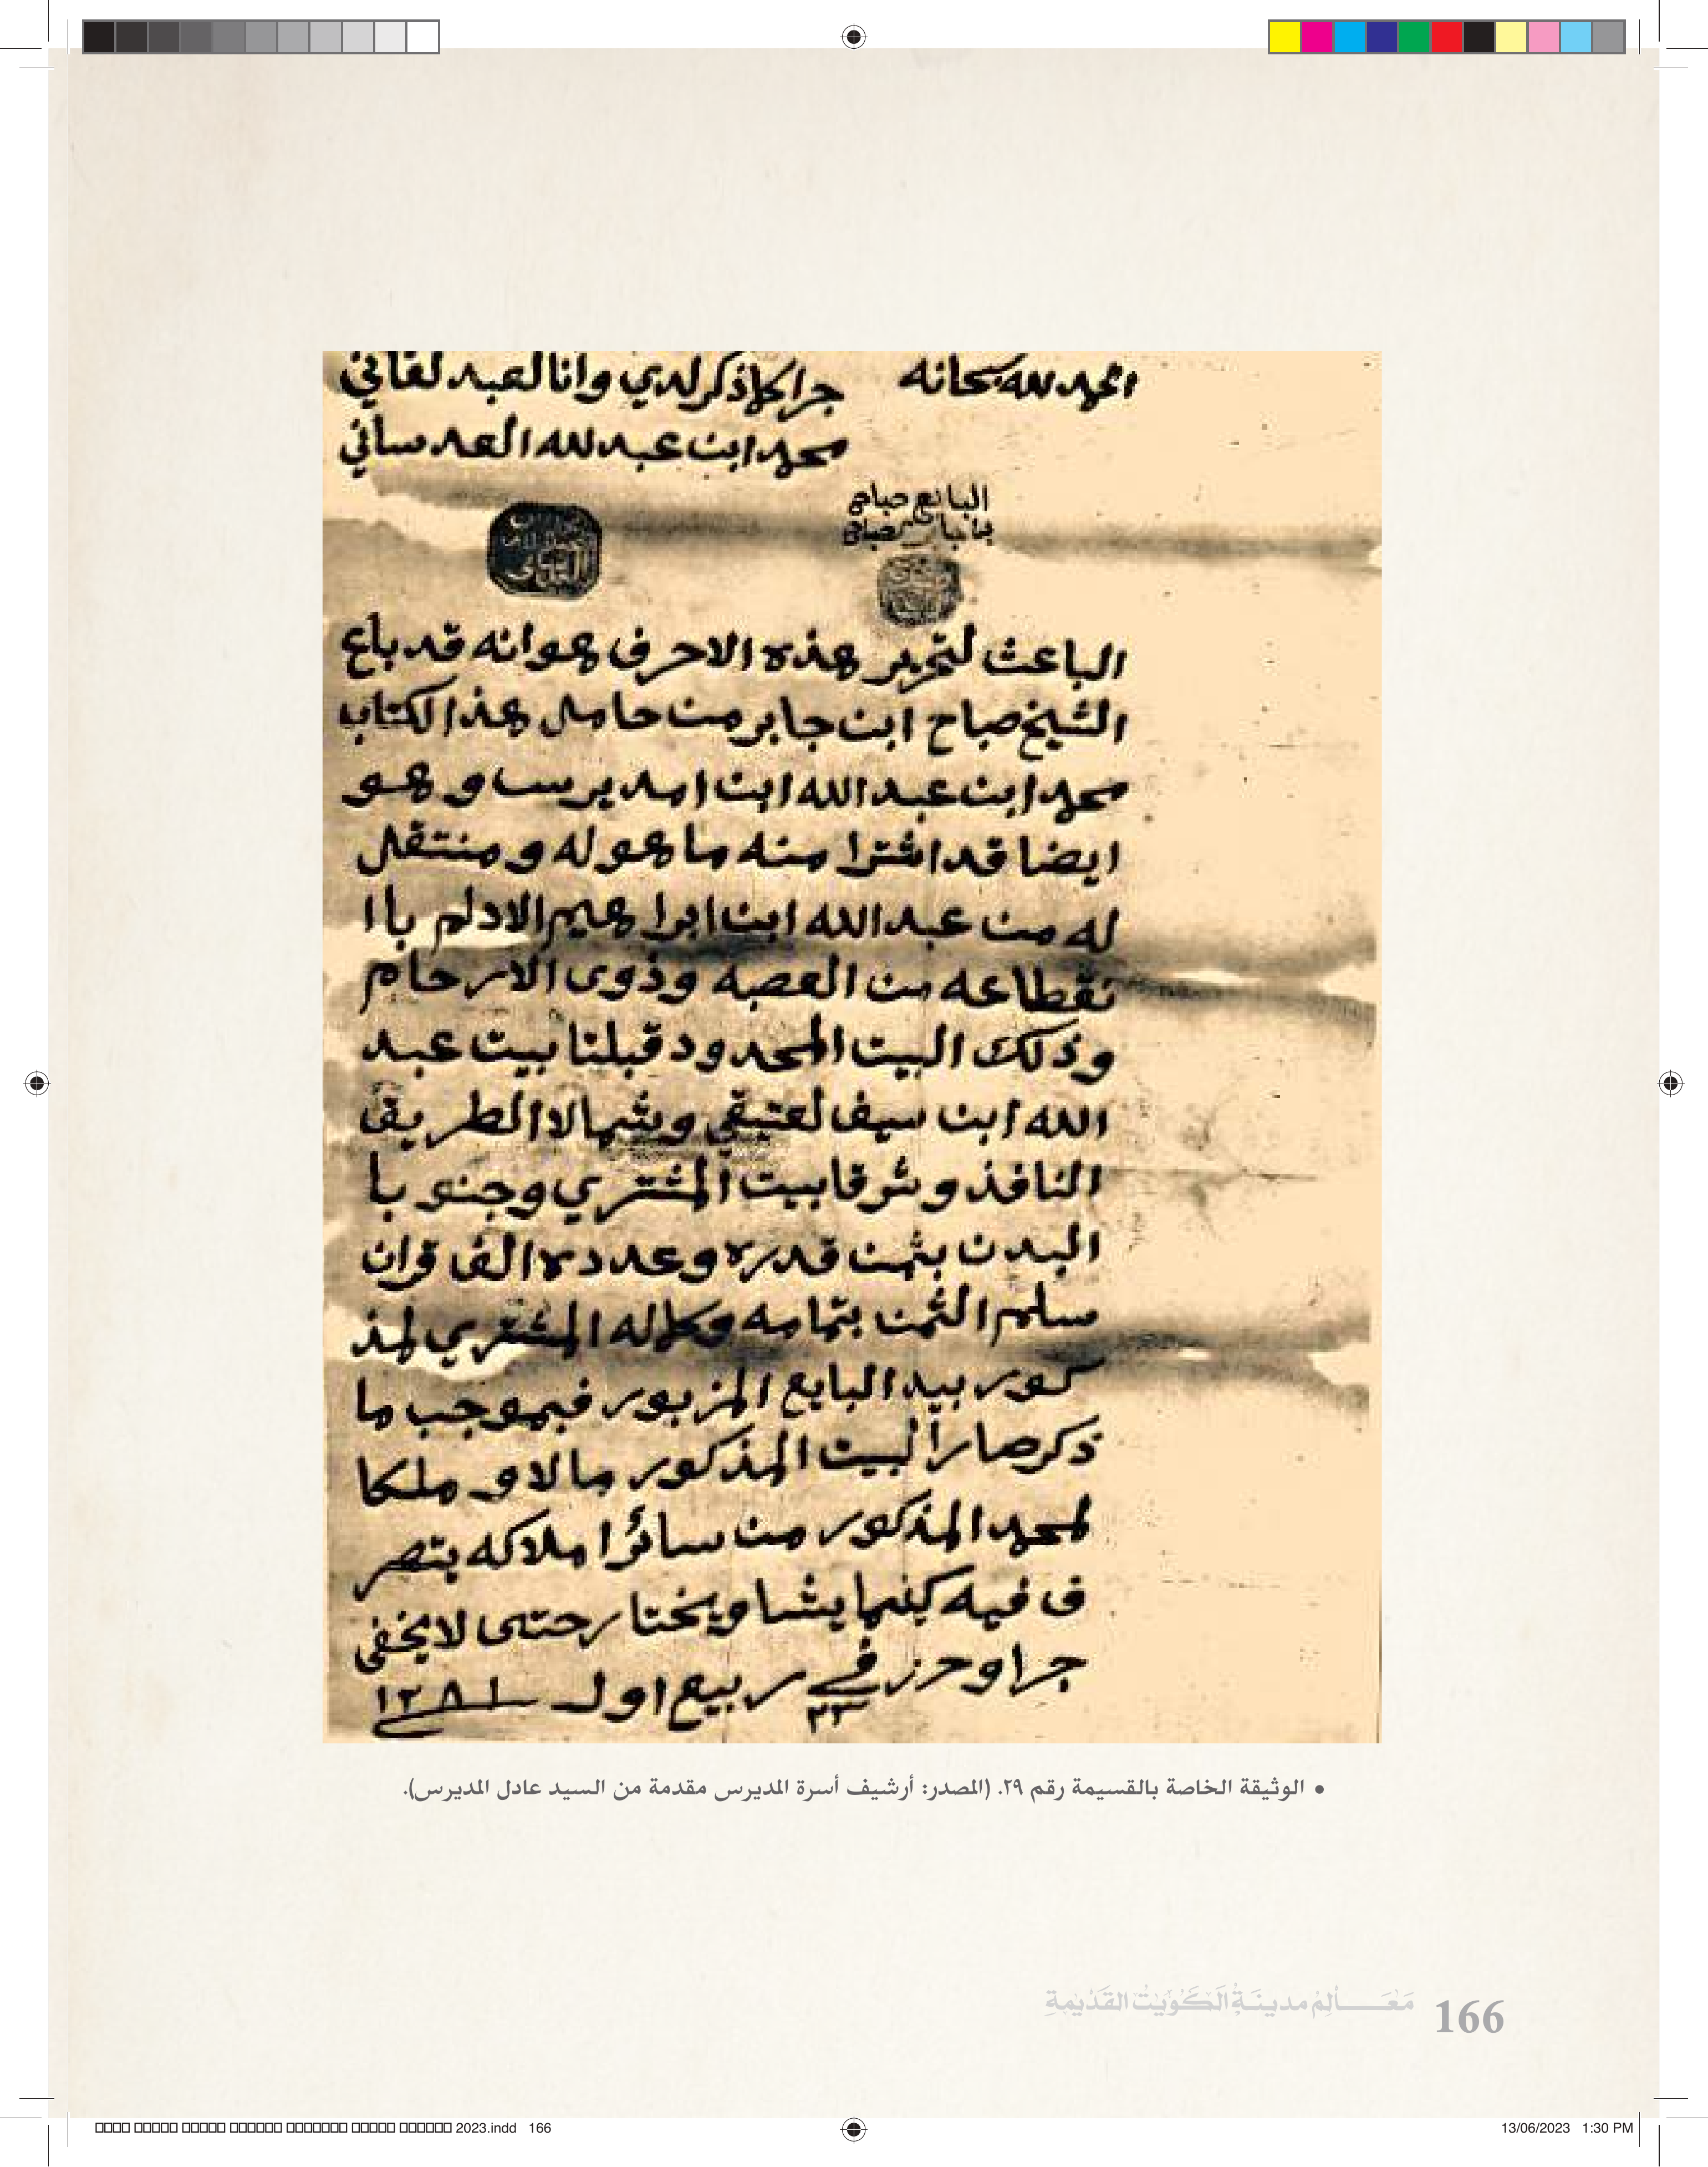 الحمد لله سبحانه
جرا كما ذكر لدي وانا لعبد لفاني
محمد ابن عبد لله العدساني
البائع صباح
الباعث لتحرير هذه الاحرف هو انه قد باع
الشيخ صباح ابن جابر من حامل هذا الكتاب
محمد ابن عبد الله ابن امديرس وهو
ايضا قد اشترا منه ما هو له ومنتقل
له من عبد الله ابن ابراهيم الادلم باا
نقطاعه من العصبه وذوى الارحام
وذلك البيت المحدود قبلتا بيت عبد
الله ابن سيف لعتيقي وشمالا الطريق
النافذ وشرقا بيت المشتري وجنوبا
البدن بثمن قدره وعدده الف قران
سلم الثمن بتمامه وكماله المشتري لمذ
كور بيد البايع المزبور فبموجب ما
ذكر صار البيت المذكور مالا و ملكا
لمحمد المذكور من سائر املاكه يتصر
ف فيه كيفما يشا ويختار حتى لا يخفى
جرا وحرر في ٢٣ ربيع اول ١٢٨١
• الوثيقة الخاصة بالقسيمة رقم ٢٩. (المصدر: أرشيف أسرة المديرس مقدمة من السيد عادل المديرس).
مَعَـــالِمُ مدينَـةِ الكُوَيْتُ القَدْيمَةِ 166
2023.indd 166
13/06/2023 1:30 PM